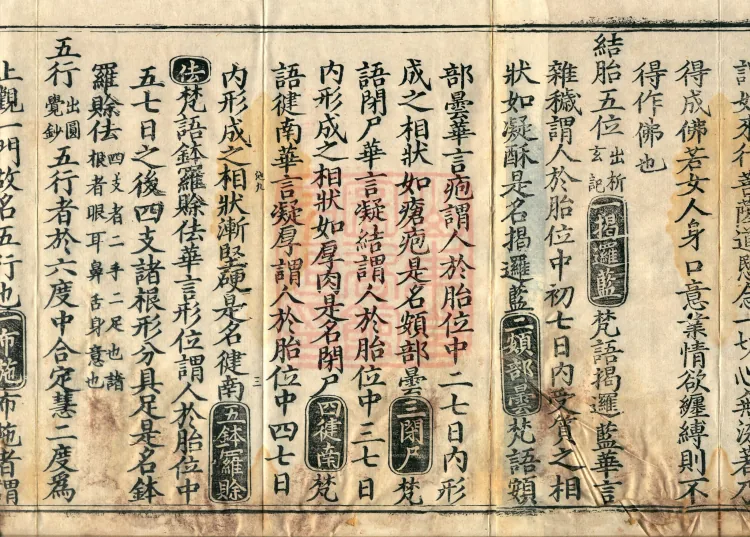 行菩薩道愍念一切心無染著
得成佛若女人身口意業情欲纏縛則不
得作佛也
結胎五位出析玄記一揭邏藍梵語揭邏藍華言
雜穢謂人於胎位中初七日內受質之相
狀如凝酥是名揭邏藍二頞部曇梵語頞
部曇華言疱謂人於胎位中二七日內形
成之相狀如瘡疱是名頞部曇三閉尸梵
語閉尸華言凝結謂人於胎位中三七日
內形成之相狀如厚肉是名閉尸四徤南梵
語徤南華言凝厚謂人於胎位中四七日
三
內形成之相狀漸堅硬是名徤南五鉢羅賒
佉梵語鉢羅賒佉華言形位謂人於胎位中
五七日之後四支諸根形分具足是名鉢
羅賒佉四支者二手二足也諸根者眼耳鼻舌身意也
五行出圓覺鈔五行者於六度中合定慧二度為
止觀一門故名五行也布施布施者謂